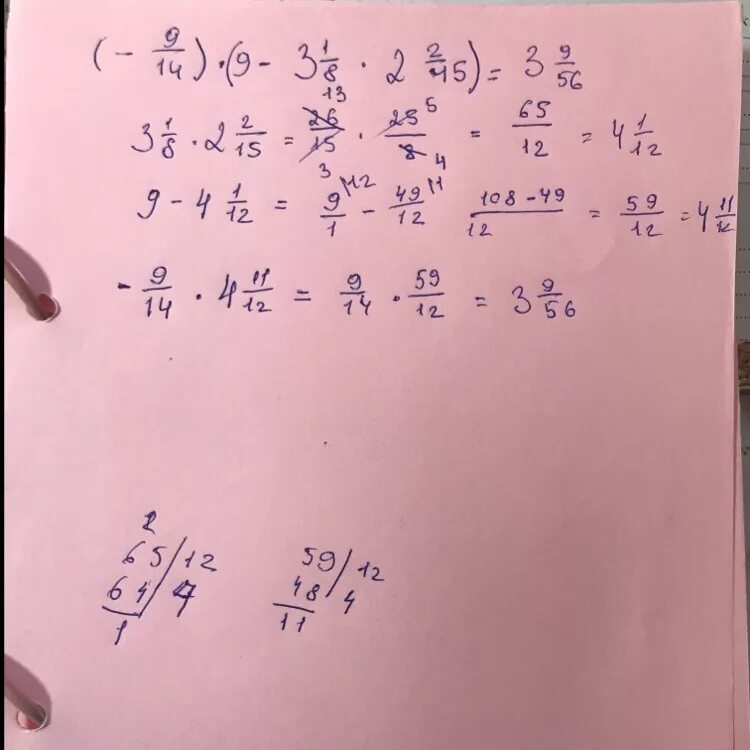 (- 9/14) · (9 - 3 1/8 · 2 2/15) = 3 9/56
3 1/8 · 2 2/15 = 26/15 · 25/8 = 65/12 = 4 1/12
13 5 3 4
9 - 4 1/12 = 9/1 - 49/12 108-49/12 = 59/12 = 4 11/12
12 1
- 9/14 · 4 11/12 = 9/14 · 59/12 = 3 9/56
65 12
64
1
59 12
48 4
11